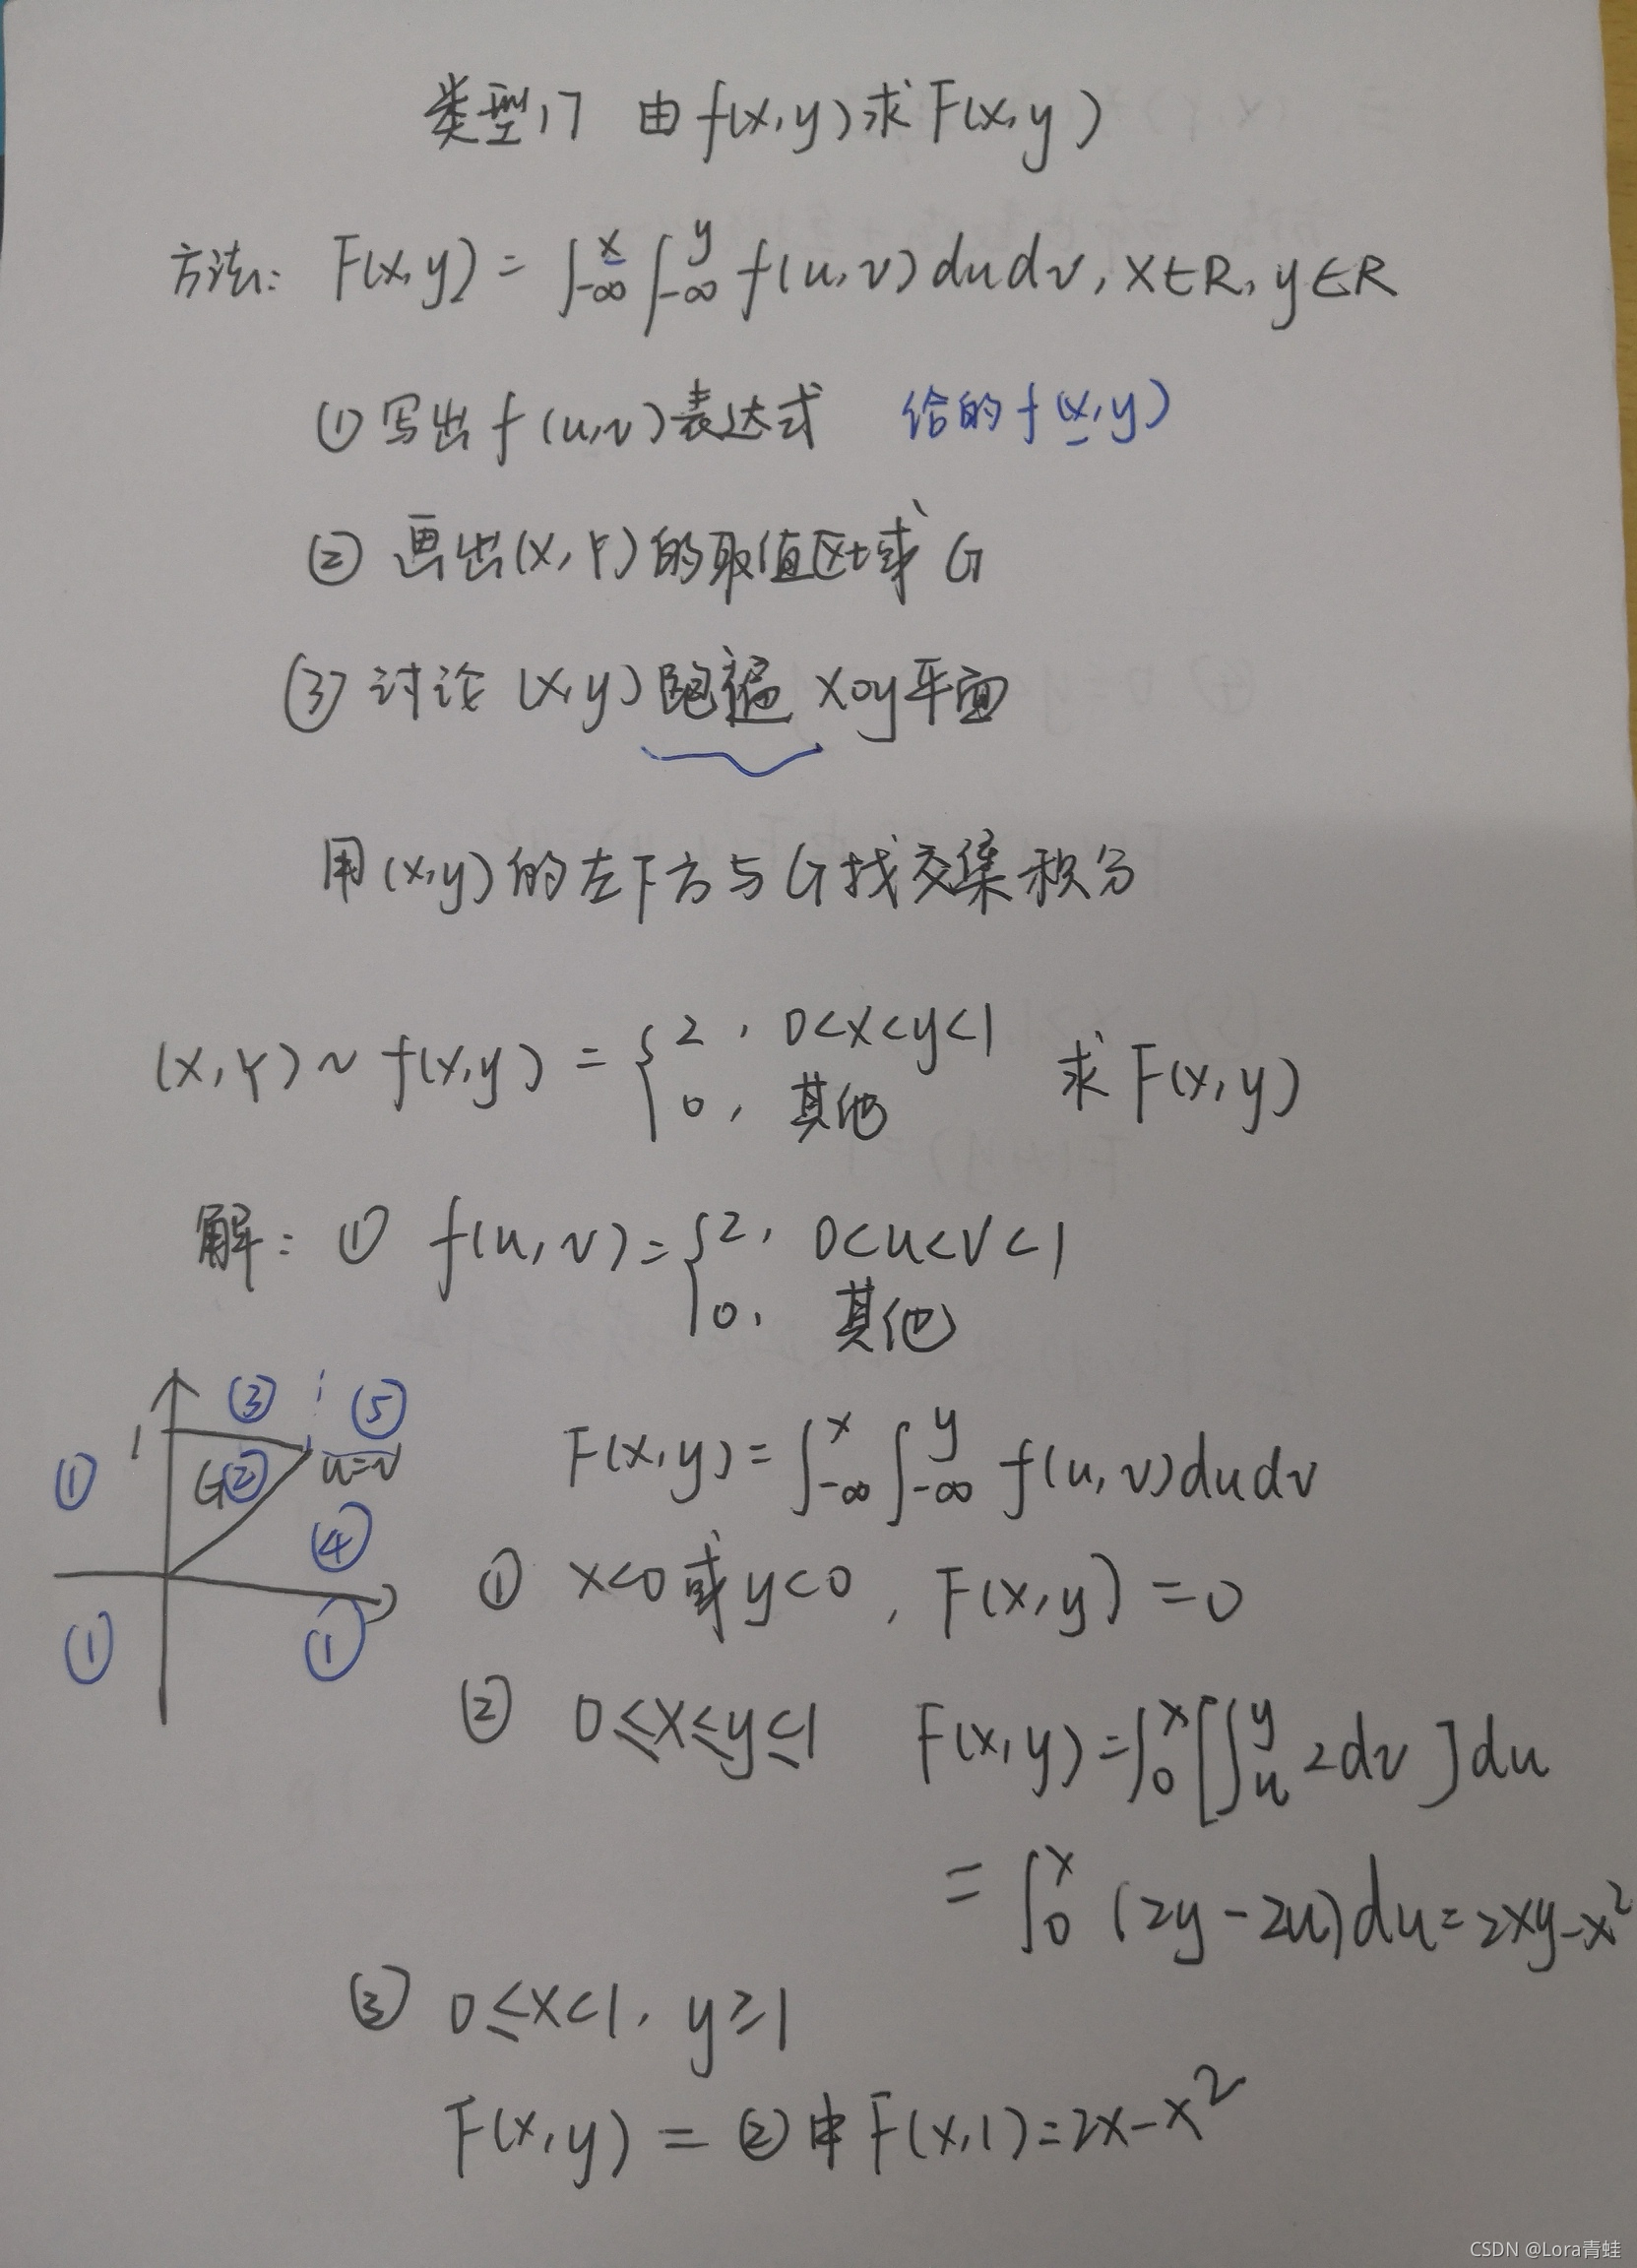 类型17 由f(x,y)求F(x,y)
方法: F(x,y) = ∫_{-∞}^{x} ∫_{-∞}^{y} f(u,v)dudv, x∈R, y∈R
① 写出f(u,v)表达式 给的f(x,y)
② 画出(X,Y)的取值区域G
③ 讨论(x,y)跑遍xoy平面
用(x,y)的左下方与G找交集积分
(X,Y)~f(x,y) = { 2, 0<x<y<1
0, 其他
求F(x,y)
解: ① f(u,v) = { 2, 0<u<v<1
0, 其他
③ ⑤
1
① G② u=v
④
① ①
F(x,y) = ∫_{-∞}^{x} ∫_{-∞}^{y} f(u,v)dudv
① x<0或y<0, F(x,y) = 0
② 0≤x≤y≤1 F(x,y) = ∫_{0}^{x} [∫_{u}^{y} 2dv]du
= ∫_{0}^{x} (2y-2u)du = 2xy-x²
③ 0≤x<1, y≥1
F(x,y) = ②中F(x,1) = 2x-x²
CSDN @Lora青蛙